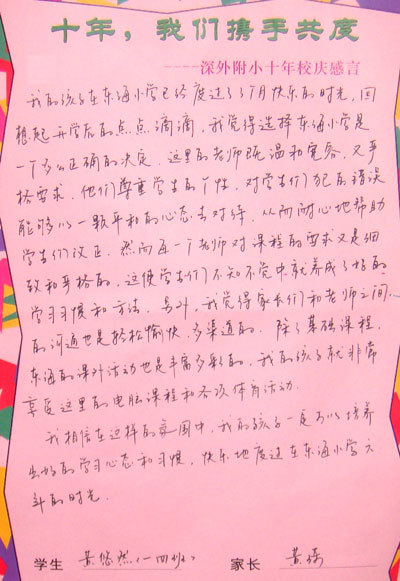 十年，我们携手共度
----深外附小十年校庆感言
我的孩子在东海小学已经度过了3个月快乐的时光，回
想起开学后的点点滴滴，我觉得选择东海小学是
一个多么正确的决定，这里的老师既温和宽容，又严
格要求，他们尊重学生的个性，对学生们犯的错误
能够以一颗平和的心态去对待，从而耐心地帮助
学生们改正。然而每一个老师对课程的要求又是细
致和严格的，这使学生们不知不觉中就养成了好的
学习习惯和方法，另外，我觉得家长们和老师之间
的沟通也是轻松愉快，多渠道的，除了基础课程，
东海的课外活动也是丰富多彩的，我的孩子就非常
享受这里的电脑课程和各项体育活动。
我相信在这样的氛围中，我的孩子一定可以培养
出好的学习心态和习惯，快乐地度过在东海小学六
年的时光。
学生 黄悠然（一四班） 家长 黄